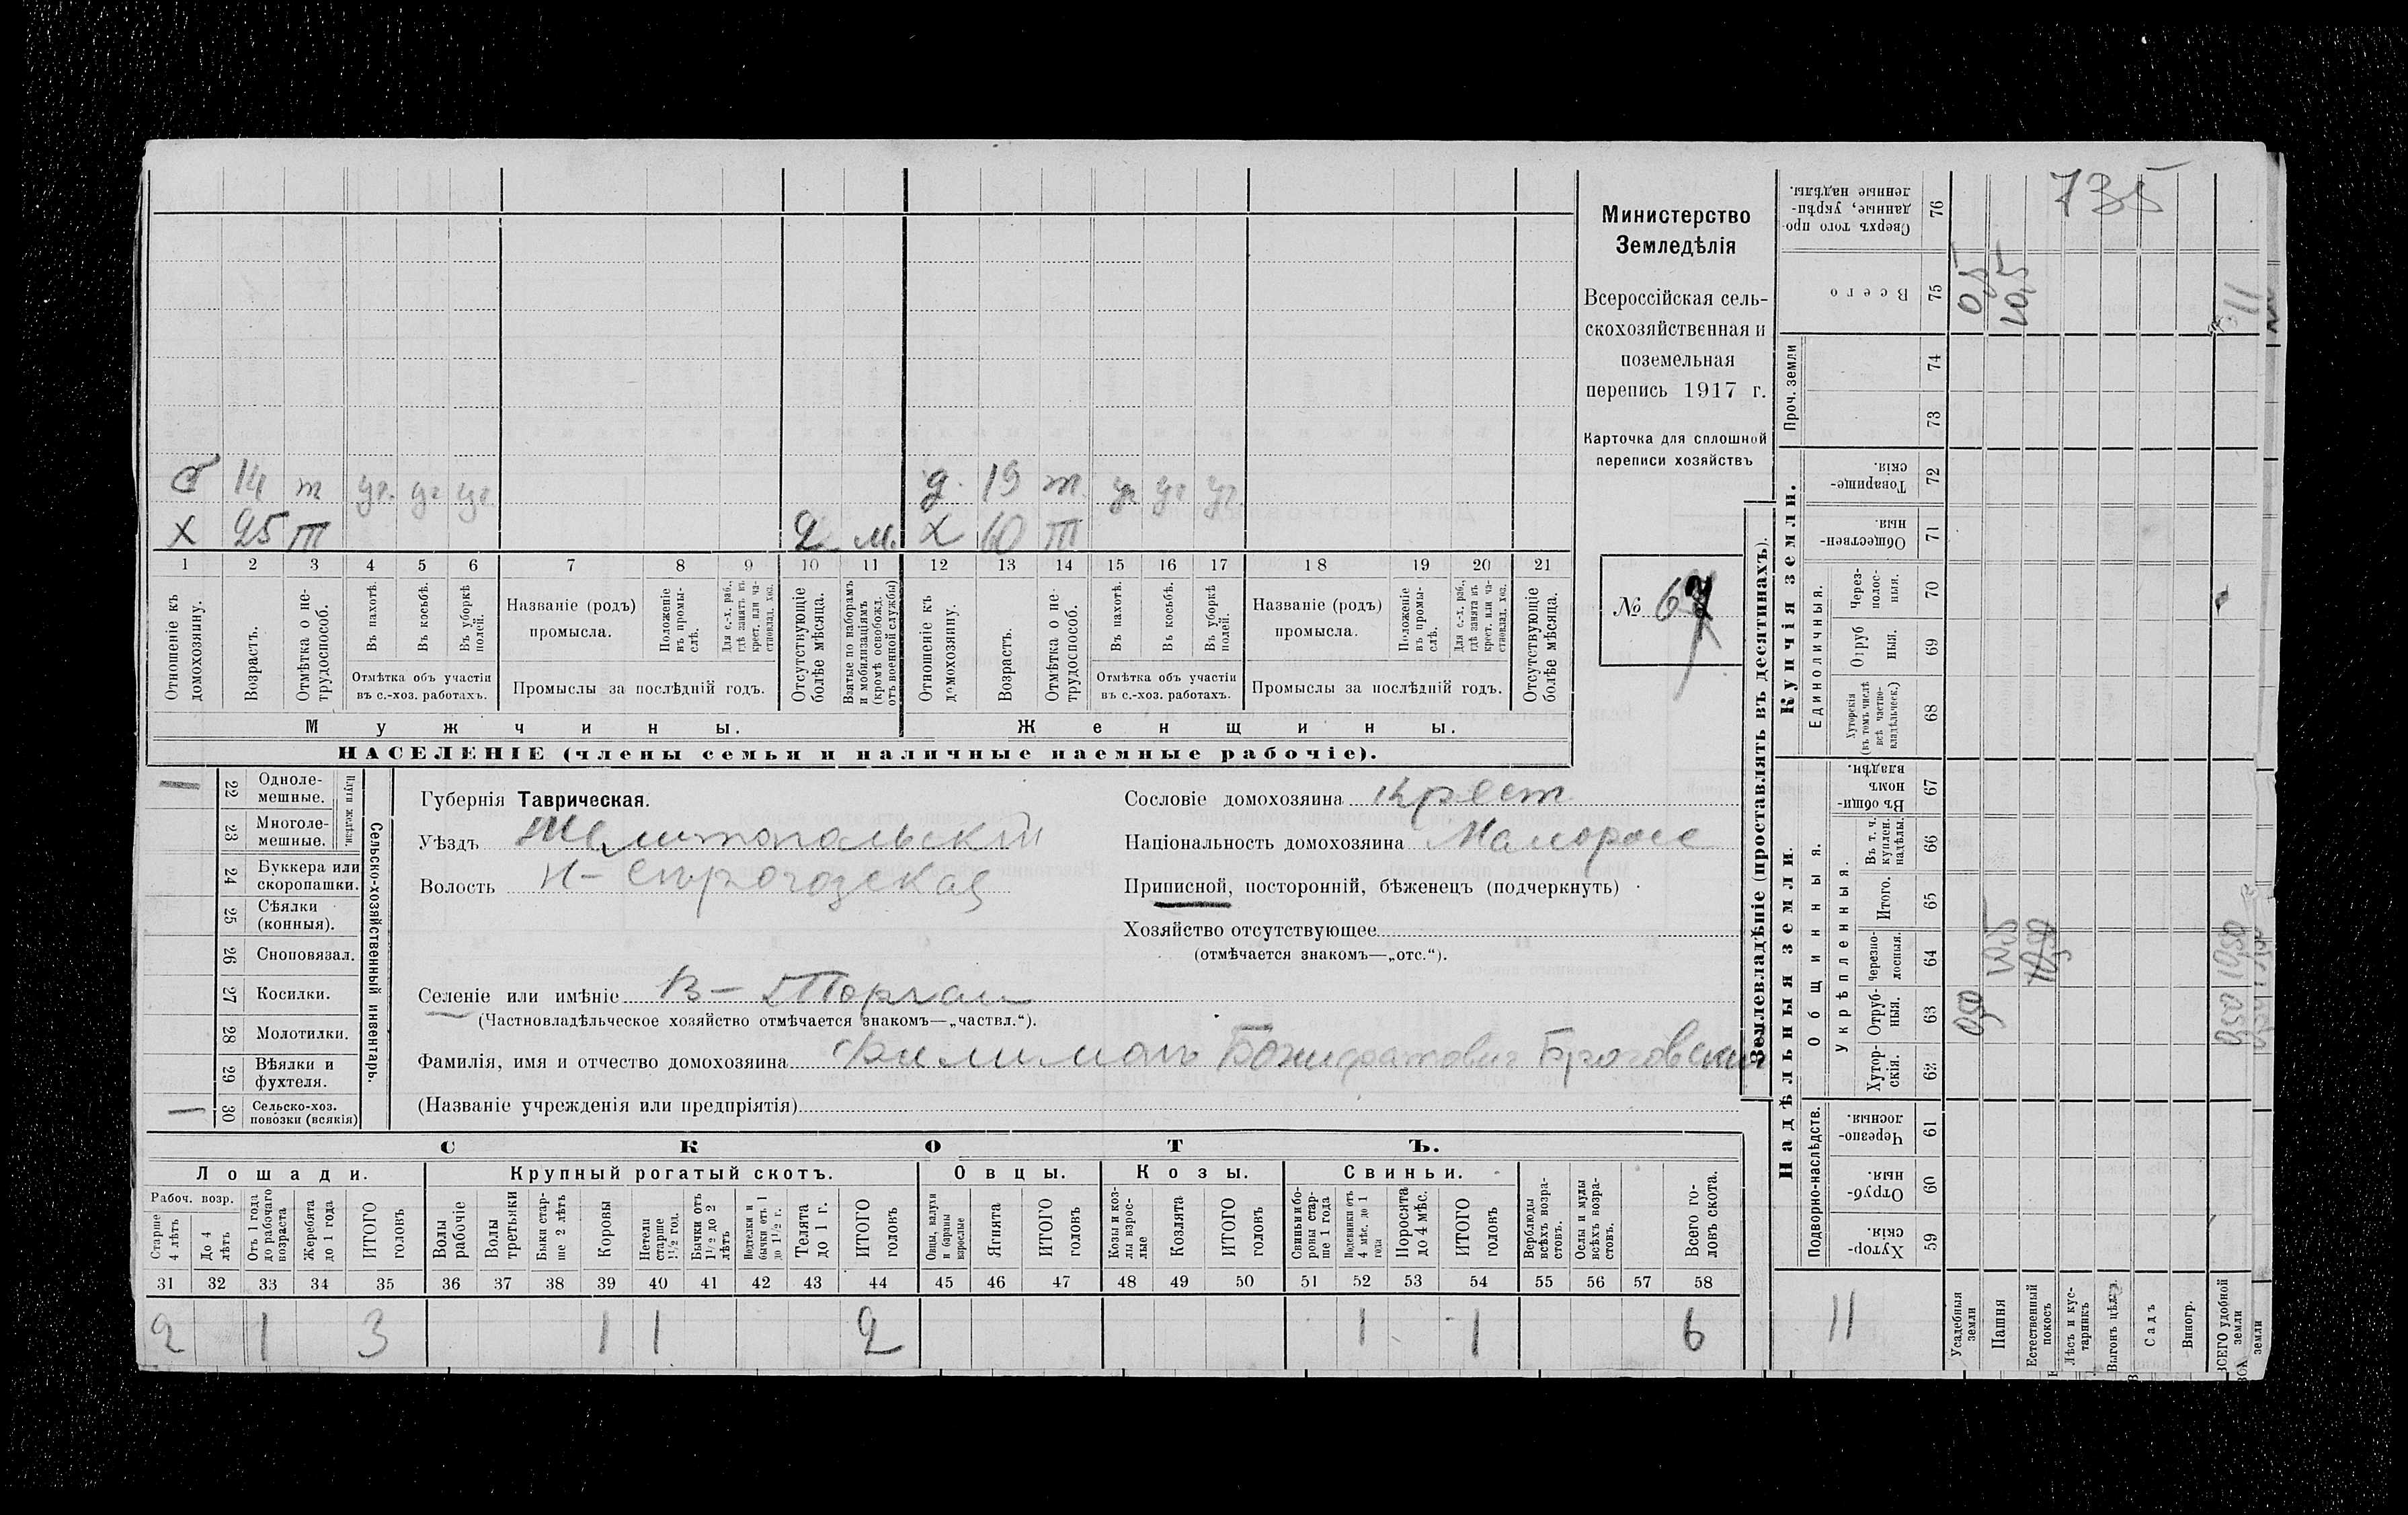 735
б 14 т уч. уч уч. д. 19 т. уч уч уч
х 25 т 2 м. х 60 т
1 2 3 4 5 6 7 8 9 10 11 12 13 14 15 16 17 18 19 20 21
Отношеніе къ домохозяину.
Возрастъ.
Отмѣтка о не-трудоспособ.
Въ пахотѣ.
Въ косьбѣ.
Въ уборкѣ полей.
Отмѣтка объ участіи
въ с.-хоз. работахъ.
Названіе (родъ)
промысла.
Положеніе въ промы-слѣ.
Для с.-х. раб., гдѣ занятъ въ крест. или ча-стновлад. хоз.
Промыслы за послѣдній годъ.
Отсутствующіе болѣе мѣсяца.
Взятые по наборамъ и мобилизаціямъ (кромѣ освобожд. отъ военной службы)
Отношеніе къ домохозяину.
Возрастъ.
Отмѣтка о не-трудоспособ.
Въ пахотѣ.
Въ косьбѣ.
Въ уборкѣ полей.
Отмѣтка объ участіи
въ с.-хоз. работахъ.
Названіе (родъ)
промысла.
Положеніе въ промы-слѣ.
Для с.-х. раб., гдѣ занята въ крест. или ча-стновлад. хоз.
Промыслы за послѣдній годъ.
Отсутствующіе болѣе мѣсяца.
Мужчины. Женщины.
НАСЕЛЕНІЕ (члены семьи и наличные наемные рабочіе).
Министерство
Земледѣлія
Всероссійская сель-
скохозяйственная и
поземельная
перепись 1917 г.
Карточка для сплошной
переписи хозяйствъ
№ 67
Сельско-хозяйственный инвентарь.
Плуги желѣзн.
1 22 Одноле-мешные.
23 Многоле-мешные.
24 Буккера или скоропашки.
25 Сѣялки (конныя).
26 Сноповязал.
27 Косилки.
28 Молотилки.
29 Вѣялки и фухтеля.
1 30 Сельско-хоз. повозки (всякія)
Губернія Таврическая.
Уѣздъ Мелитопольскій
Волость Н-Сѣрогозская
Сословіе домохозяина крест
Національность домохозяина Малоросс
Приписной, посторонній, бѣженецъ (подчеркнуть)
Хозяйство отсутствующее
(отмѣчается знакомъ—„отс.“).
Селеніе или имѣніе В-Торгаи
(Частновладѣльческое хозяйство отмѣчается знакомъ—„частвл.“).
Фамилія, имя и отчество домохозяина Филимонъ
(Названіе учрежденія или предпріятія)
СКОТЪ.
Лошади. Крупный рогатый скотъ. Овцы. Козы. Свиньи.
Рабоч. возр.
Старше 4 лѣтъ
До 4 лѣтъ
Отъ 1 года до рабочаго возраста
Жеребята до 1 года
ИТОГО головъ
Волы рабочіе
Волы третьяки
Быки стар-ше 2 лѣтъ
Коровы
Нетели старше 1½ год.
Бычки отъ 1½ до 2 лѣтъ
Подтелки и бычки отъ 1 до 1½ г.
Телята до 1 г.
ИТОГО головъ
Овцы, валухи и бараны взрослые
Ягнята
ИТОГО головъ
Козы и коз-лы взрос-лые
Козлята
ИТОГО головъ
Свиньи и бо-ровы стар-ше 1 года
Подсвинки отъ 4 мѣс. до 1 года
Поросята до 4 мѣс.
ИТОГО головъ
Верблюды всѣхъ возра-стовъ.
Ослы и мулы всѣхъ возра-стовъ.
Всего го-ловъ скота.
31 32 33 34 35 36 37 38 39 40 41 42 43 44 45 46 47 48 49 50 51 52 53 54 55 56 57 58
2 1 3 1 1 2 1 1 6
Землевладѣніе (проставлять въ десятинахъ).
Купчія земли.
Надѣльныя земли.
Сверхъ того про-данные, укрѣп-ленные надѣлы. 76
Всего 75 0,5 10,5 11
Проч. земли 74
73
Товарище-скія. 72
Обществен-ныя. 71
Единоличныя.
Через-полос-ныя. 70
Отруб-ныя. 69
Хуторскія (въ томъ числѣ всѣ частно-владѣльческ.) 68
Общинныя.
Въ общи-номъ владѣн. 67
Укрѣпленныя.
Въ т. ч. куплен. надѣлы. 66
Итого. 65
Черезпо-лосныя. 64 10,5 10,50
Отруб-ныя. 63 0,50
Хутор-скія. 62
Подворно-наслѣдств.
Черезпо-лосныя. 61
Отруб-ныя. 60
Хутор-скія. 59
11
Усадебныя земли
Пашня
Естественный покосъ
Лѣсъ и кус-тарникъ
Выгонъ цѣл.
Садъ
Виногр.
ВСЕГО удобной земли
0,50 10,50